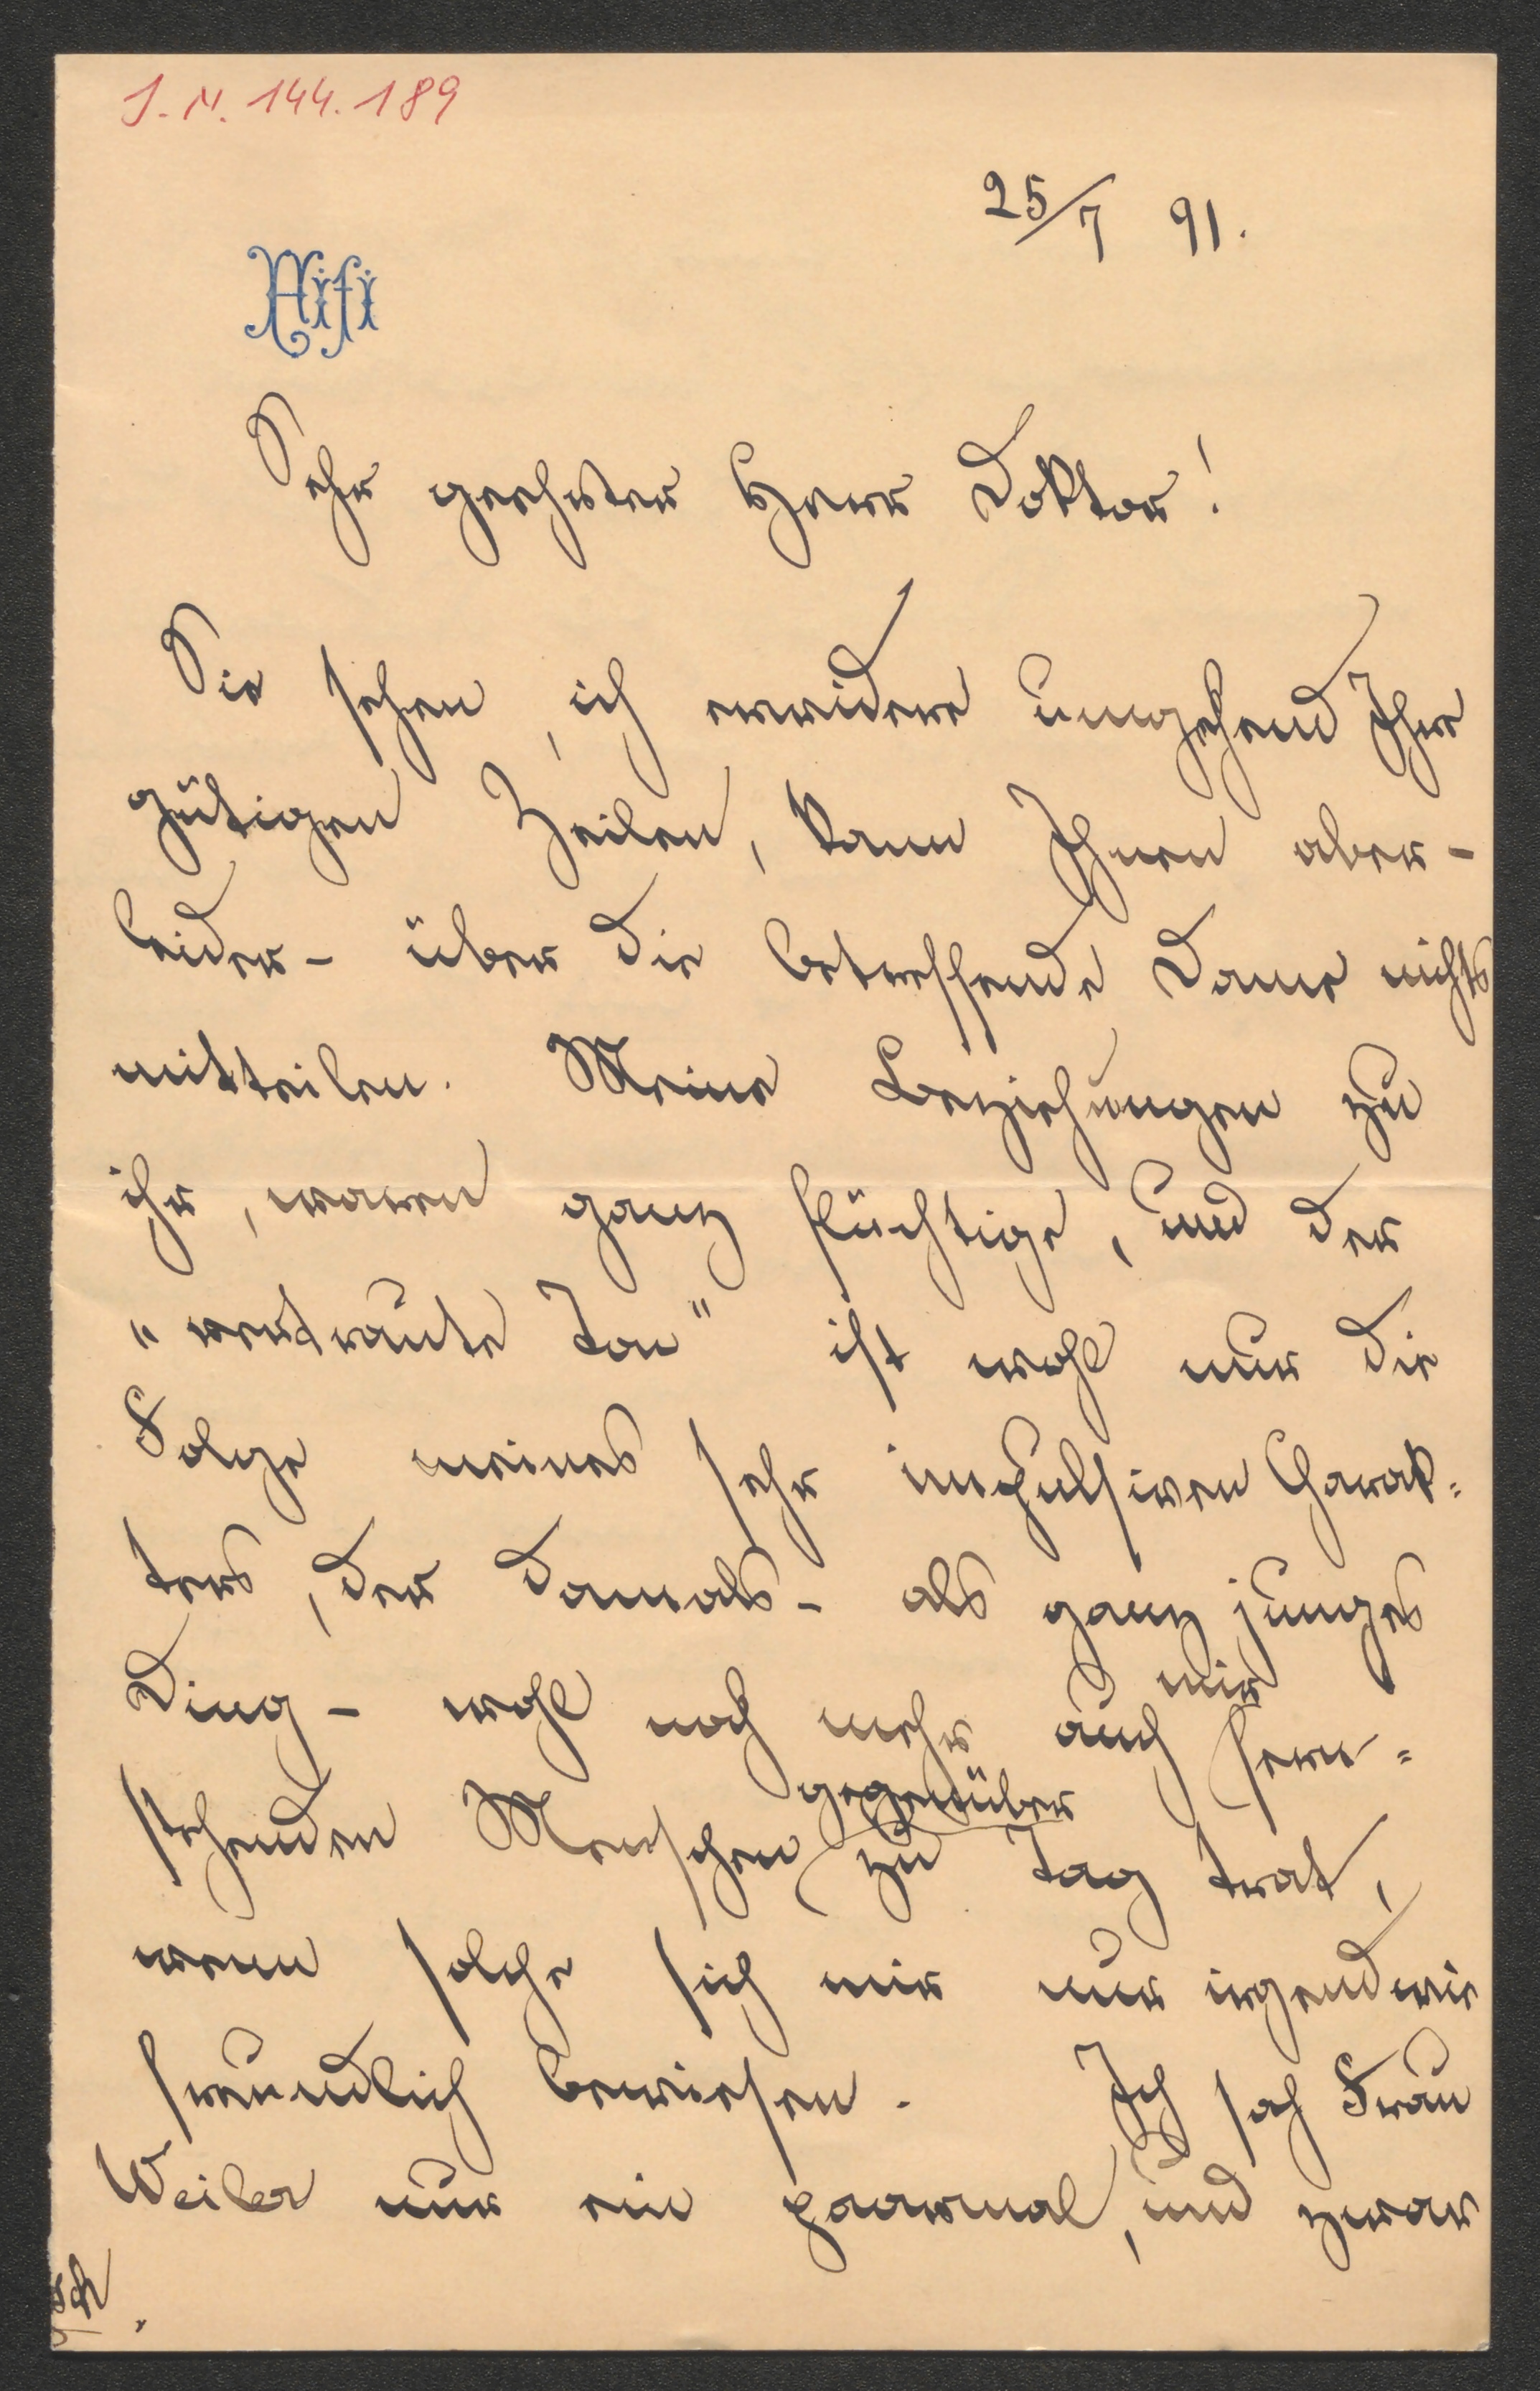 I. N. 144.189
25/7 91.
Fifi
Sehr geehrter Herr Doktor!
Sie sehen, ich erwidere umgehend Ihre
gütigen Zeilen, kann Ihnen aber -
leider - über die betreffende Dame nichts
mitteilen. Meine Beziehungen zu
ihr, waren ganz flüchtige, und der
„vertraute Ton" ist wohl nur die
Folge meines sehr impulsiven Charak=
ters, der damals - als ganz junges
Ding - wohl noch mehr auch mir fern=
stehenden Menschen gegenüber zu Tag trat,
wenn solche sich mir nur irgendwie
freundlich bewiesen. Ich sah Frau
Weiler nur ein paarmal, und zwar